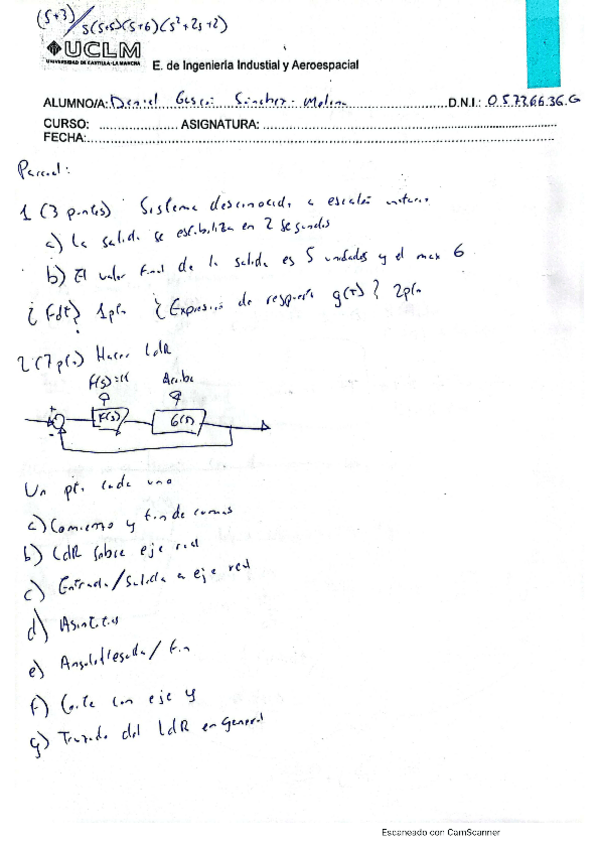 (s+3)/s(s+5)(s+6)(s²+2s+2)
UCLM
UNIVERSIDAD DE CASTILLA-LA MANCHA
E. de Ingeniería Industial y Aeroespacial
ALUMNO/A: Daniel Sánchez- Molina D.N.I.: 05.723.66.36.G
CURSO: ASIGNATURA:
FECHA:
Parcial:
1 (3 puntos) Sistema desconocido a escalón unitario
a) La salida se estabiliza en 2 segundos
b) El valor final de la salida es 5 unidades y el max 6
¿Fdt? 1pto ¿Expresión de respuesta g(t)? 2pto
2 (7 pto) Hacer LdR
F(s)=K Arriba
+ F(s) G(s)
-
Un pto. cada uno
a) Comienzo y fin de ramas
b) LdR sobre eje real
c) Entrada/Salida a eje real
d) Asíntotas
e) Angulo llegada / fin
f) Corte con eje y
g) Trazado del LdR en General
Escaneado con CamScanner